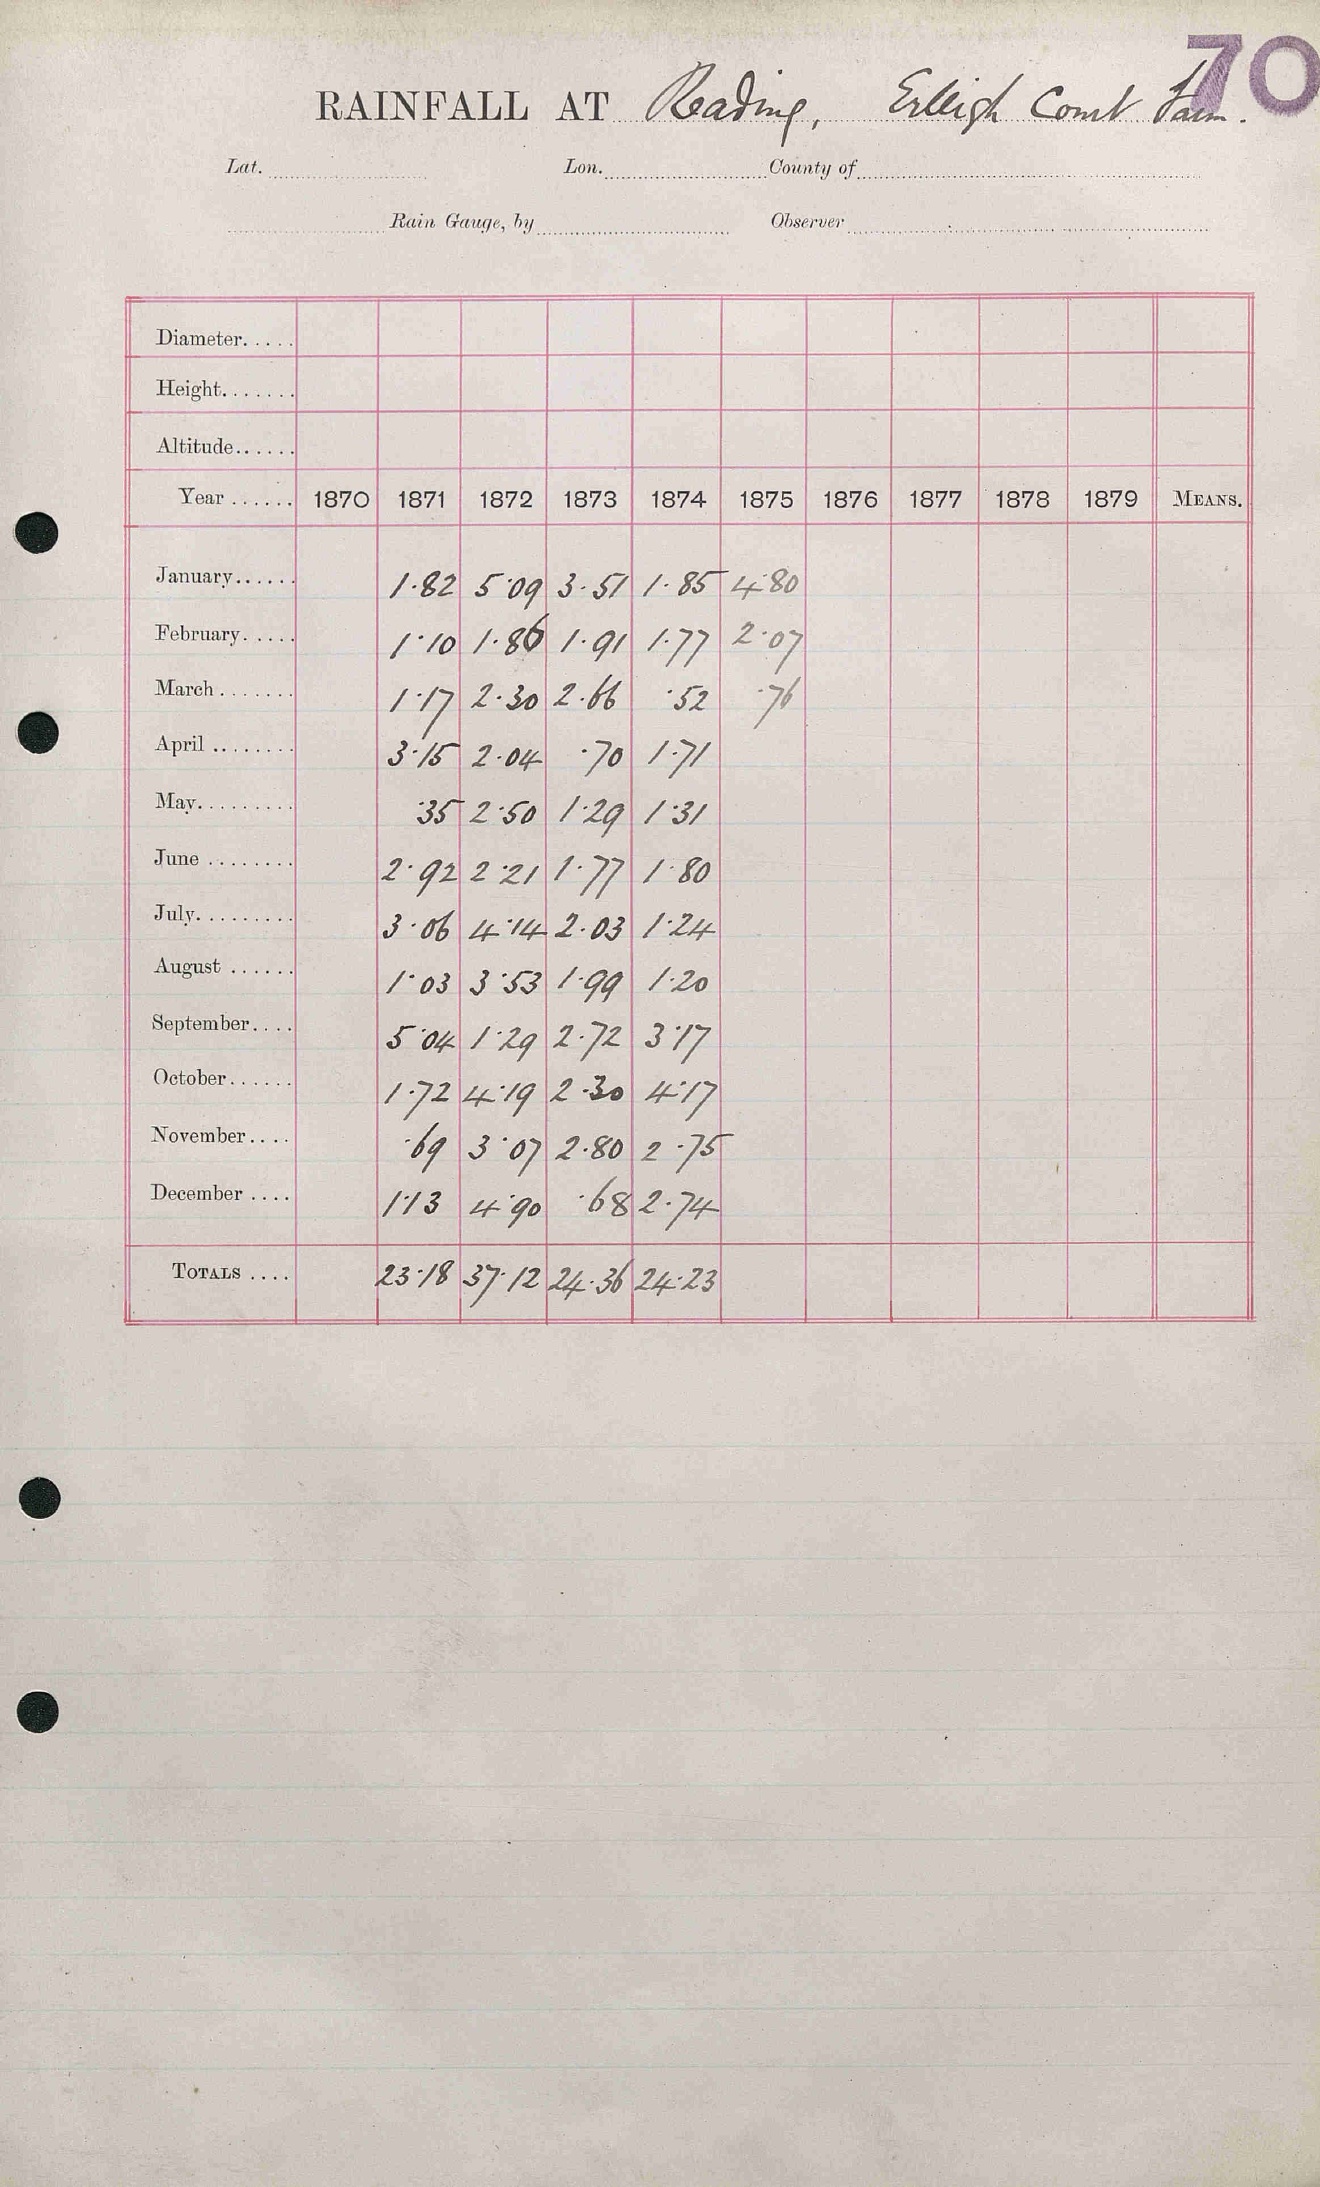 70
RAINFALL AT Reading, Erleigh Court Farm.
Lat. Lon. County of
Rain Gauge, by Observer
Diameter.....
Height.......
Altitude......
Year ...... 1870 1871 1872 1873 1874 1875 1876 1877 1878 1879 MEANS.
January...... 1.82 5.09 3.51 1.85 4.80
February..... 1.10 1.86 1.91 1.77 2.07
March ....... 1.17 2.30 2.66 .52 .76
April ........ 3.15 2.04 .70 1.71
May......... .35 2.50 1.29 1.31
June ........ 2.92 2.21 1.77 1.80
July......... 3.06 4.14 2.03 1.24
August ...... 1.03 3.53 1.99 1.20
September.... 5.04 1.29 2.72 3.17
October...... 1.72 4.19 2.30 4.17
November.... .69 3.07 2.80 2.75
December .... 1.13 4.90 .68 2.74
TOTALS .... 23.18 37.12 24.36 24.23